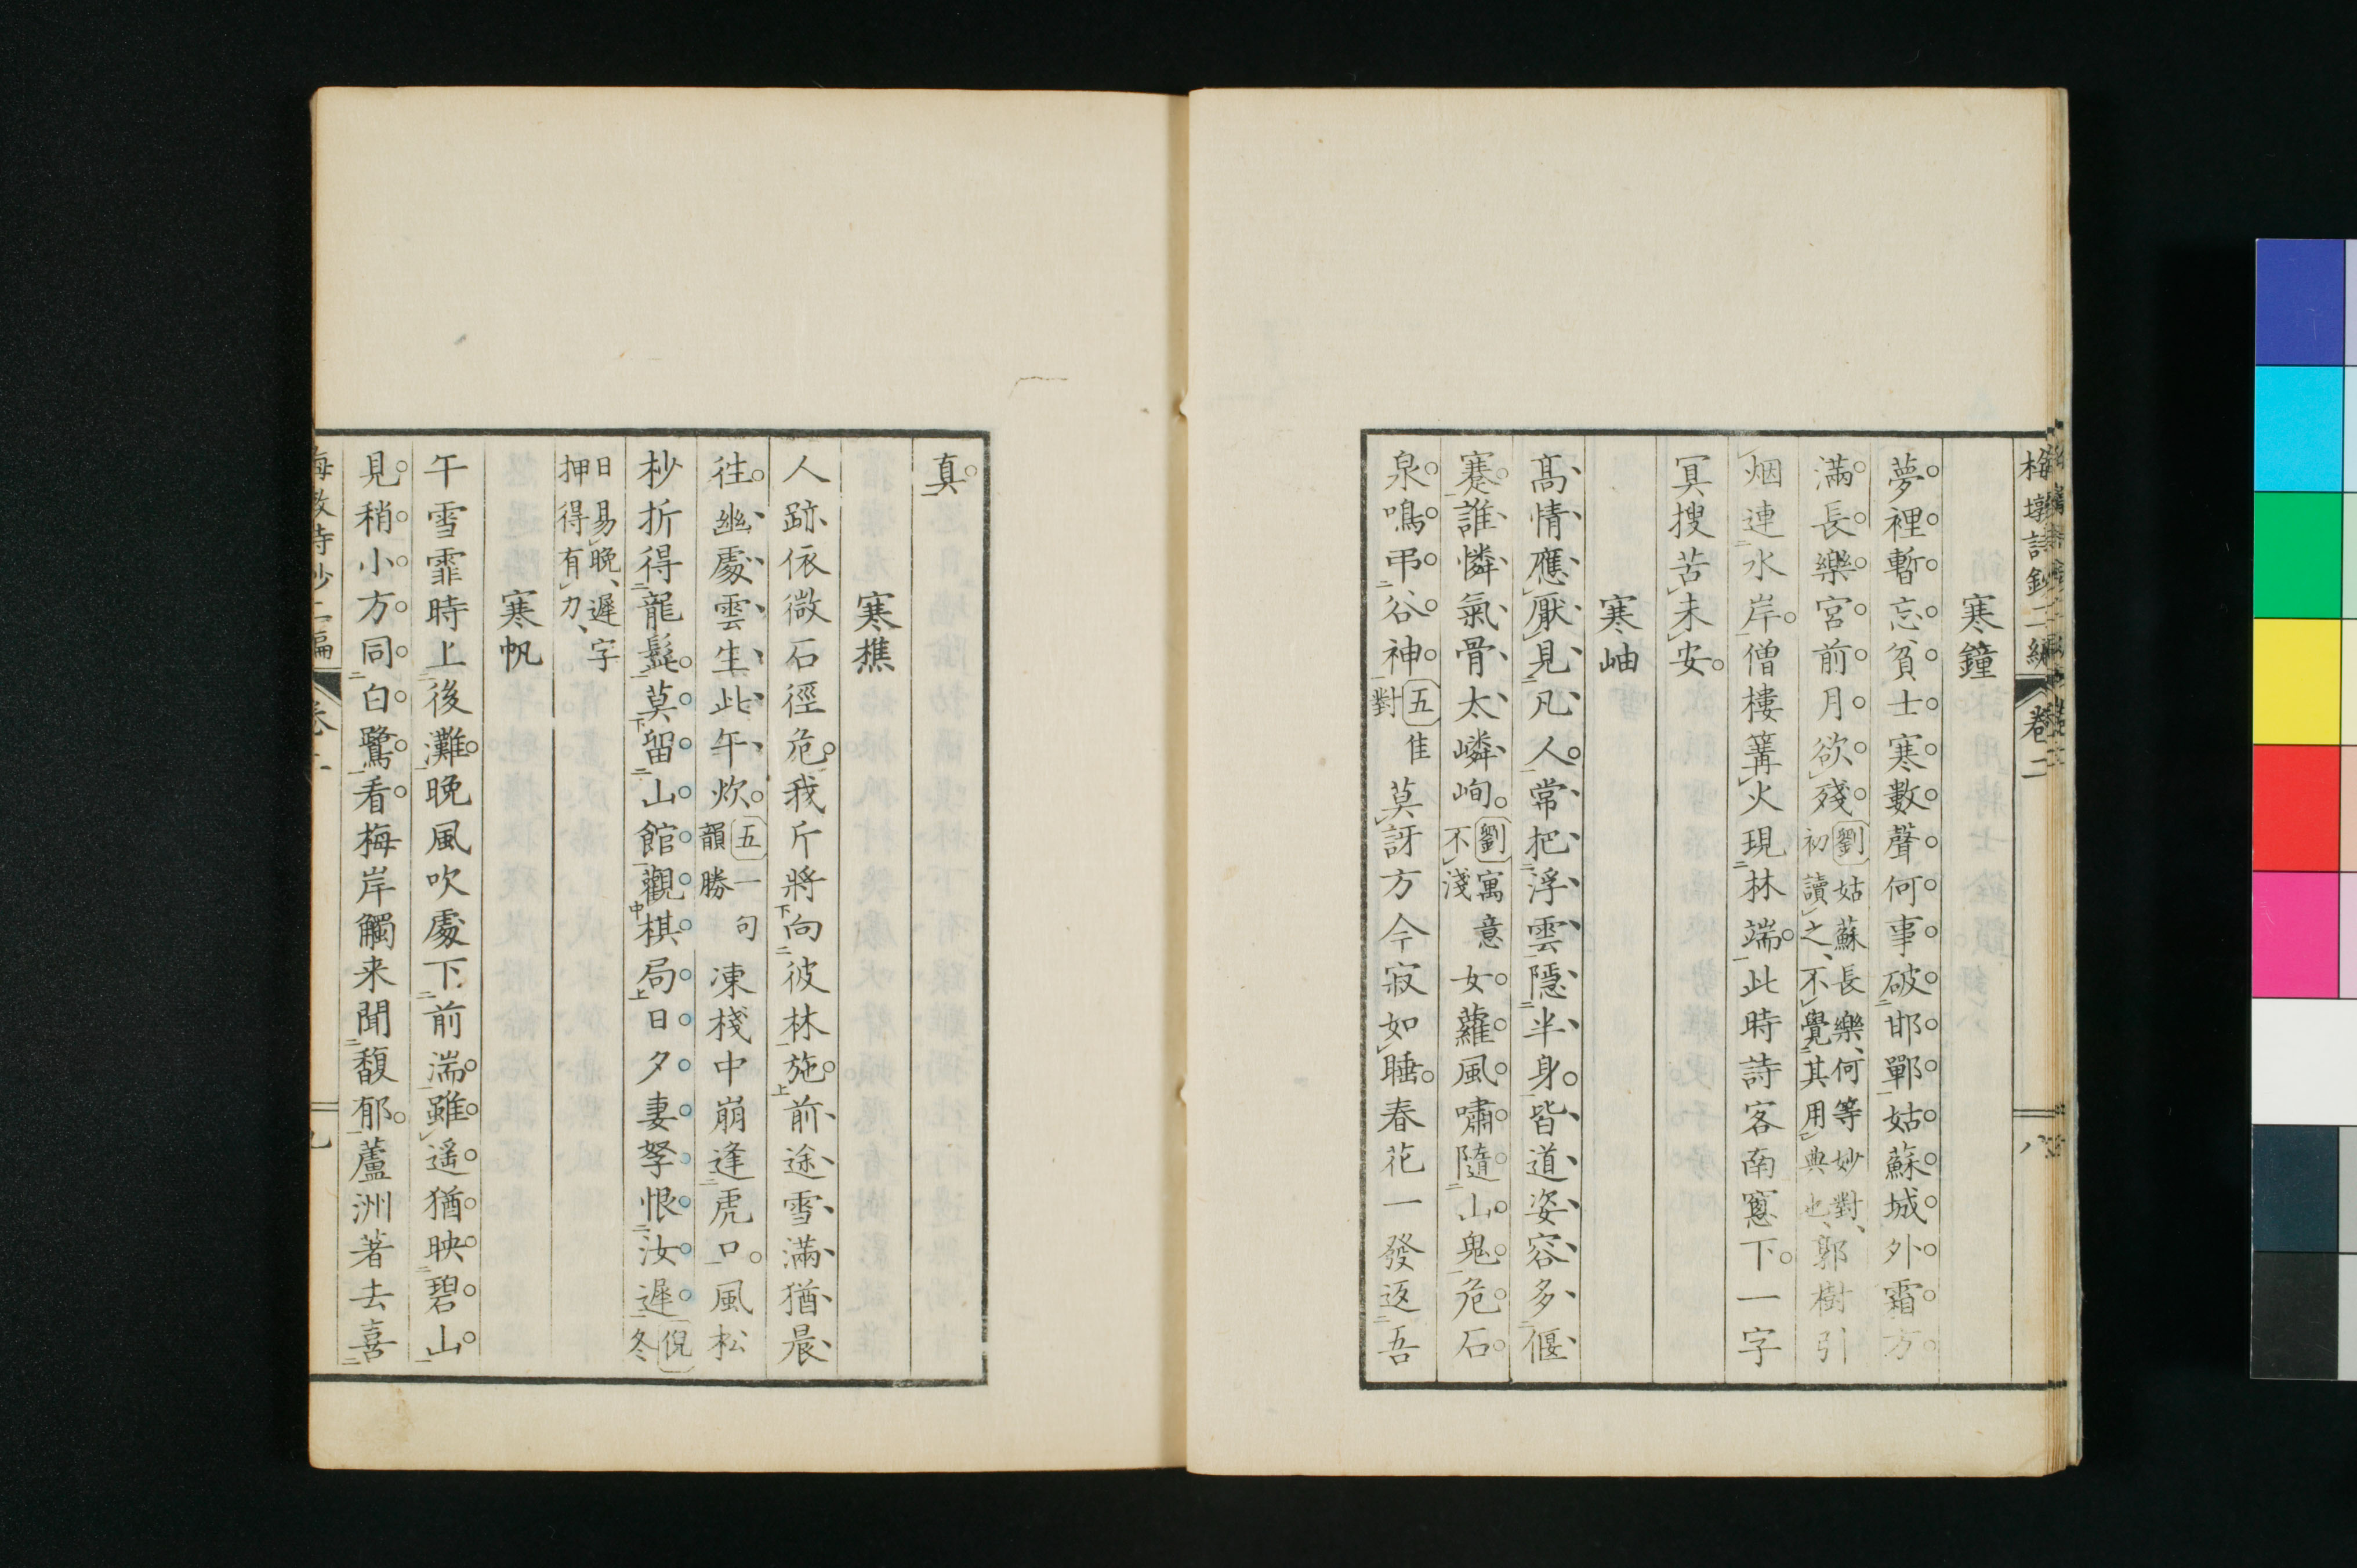 梅墩詩鈔二編 卷二 八
寒鐘
夢裡暫忘貧士寒數聲何事破邯鄲姑蘇城外霜方
滿長樂宮前月欲殘劉姑蘇長樂、何等妙對、初讀之、不覺其用典也、郭樹引
烟連水岸僧樓篝火現林端此時詩客南窻下一字
冥搜苦未安
寒岫
高情應厭見凡人常把浮雲隱半身皆道姿容多偃
蹇誰憐氣骨太嶙峋劉寓意不淺女蘿風嘯隨山鬼危石
泉鳴弔谷神五隹對莫訝方今寂如睡春花一發返吾
真
寒樵
人跡依微石徑危我斤將向彼林施前途雪滿猶晨
往幽處雲生此午炊五一句韻勝凍棧中崩逢虎口風松
杪折得龍髭莫留山館觀棋局日夕妻孥恨汝遲倪冬
日易晚、遲字押得有力、
寒帆
午雪霏時上後灘晚風吹處下前湍雖遥猶映碧山
見稍小方同白鷺看梅岸觸来聞馥郁蘆洲著去喜